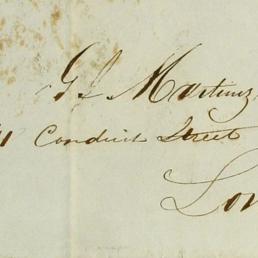 G S Martinez
Conduit Street
Lon